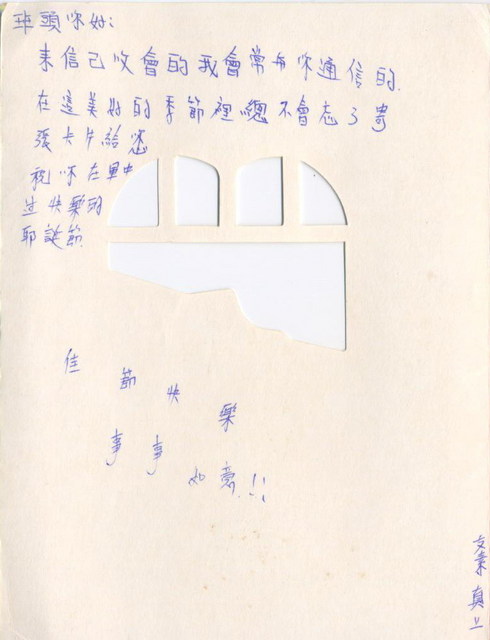 班頭你好:
來信已收會的我會常与你通信的.
在這美好的季節裡總不會忘了寄
張卡片給您
祝你在軍中
过快樂的
耶誕節.
佳節快樂
事事如意.!!
真